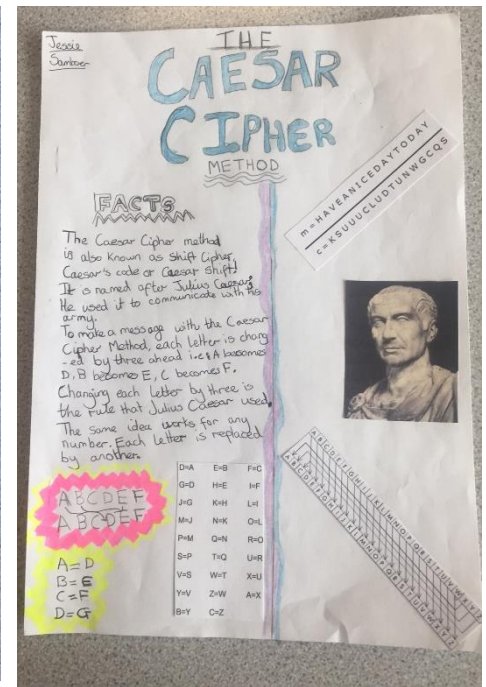 Jessie
THE
CAESAR
CIPHER
METHOD
m = HAVEANICEDAYTODAY
c = KSUUUCLUDTUNWGCQS
FACTS
The Caesar Cipher method
is also known as Shift Cipher,
Caesar's code or Caesar Shift!
It is named after Julius Caesar,
He used it to communicate with his
army.
To make a message with the Caesar
Cipher Method, each letter is chang
-ed by three ahead i.e A becomes
D, B becomes E, C becomes F.
Changing each letter by three is
the rule that Julius Caesar used.
The same idea works for any
number. Each letter is replaced
by another.
ABCDEF
ABCDEF
A=D
B=E
C=F
D=G
D=A E=B F=C
G=D H=E I=F
J=G K=H L=I
M=J N=K O=L
P=M Q=N R=O
S=P T=Q U=R
V=S W=T X=U
Y=V Z=W A=X
B=Y C=Z
ABCDEFGHIJKLMNOPQRSTUVWXYZ
ABCDEFGHIJKLMNOPQRSTUVWXYZ